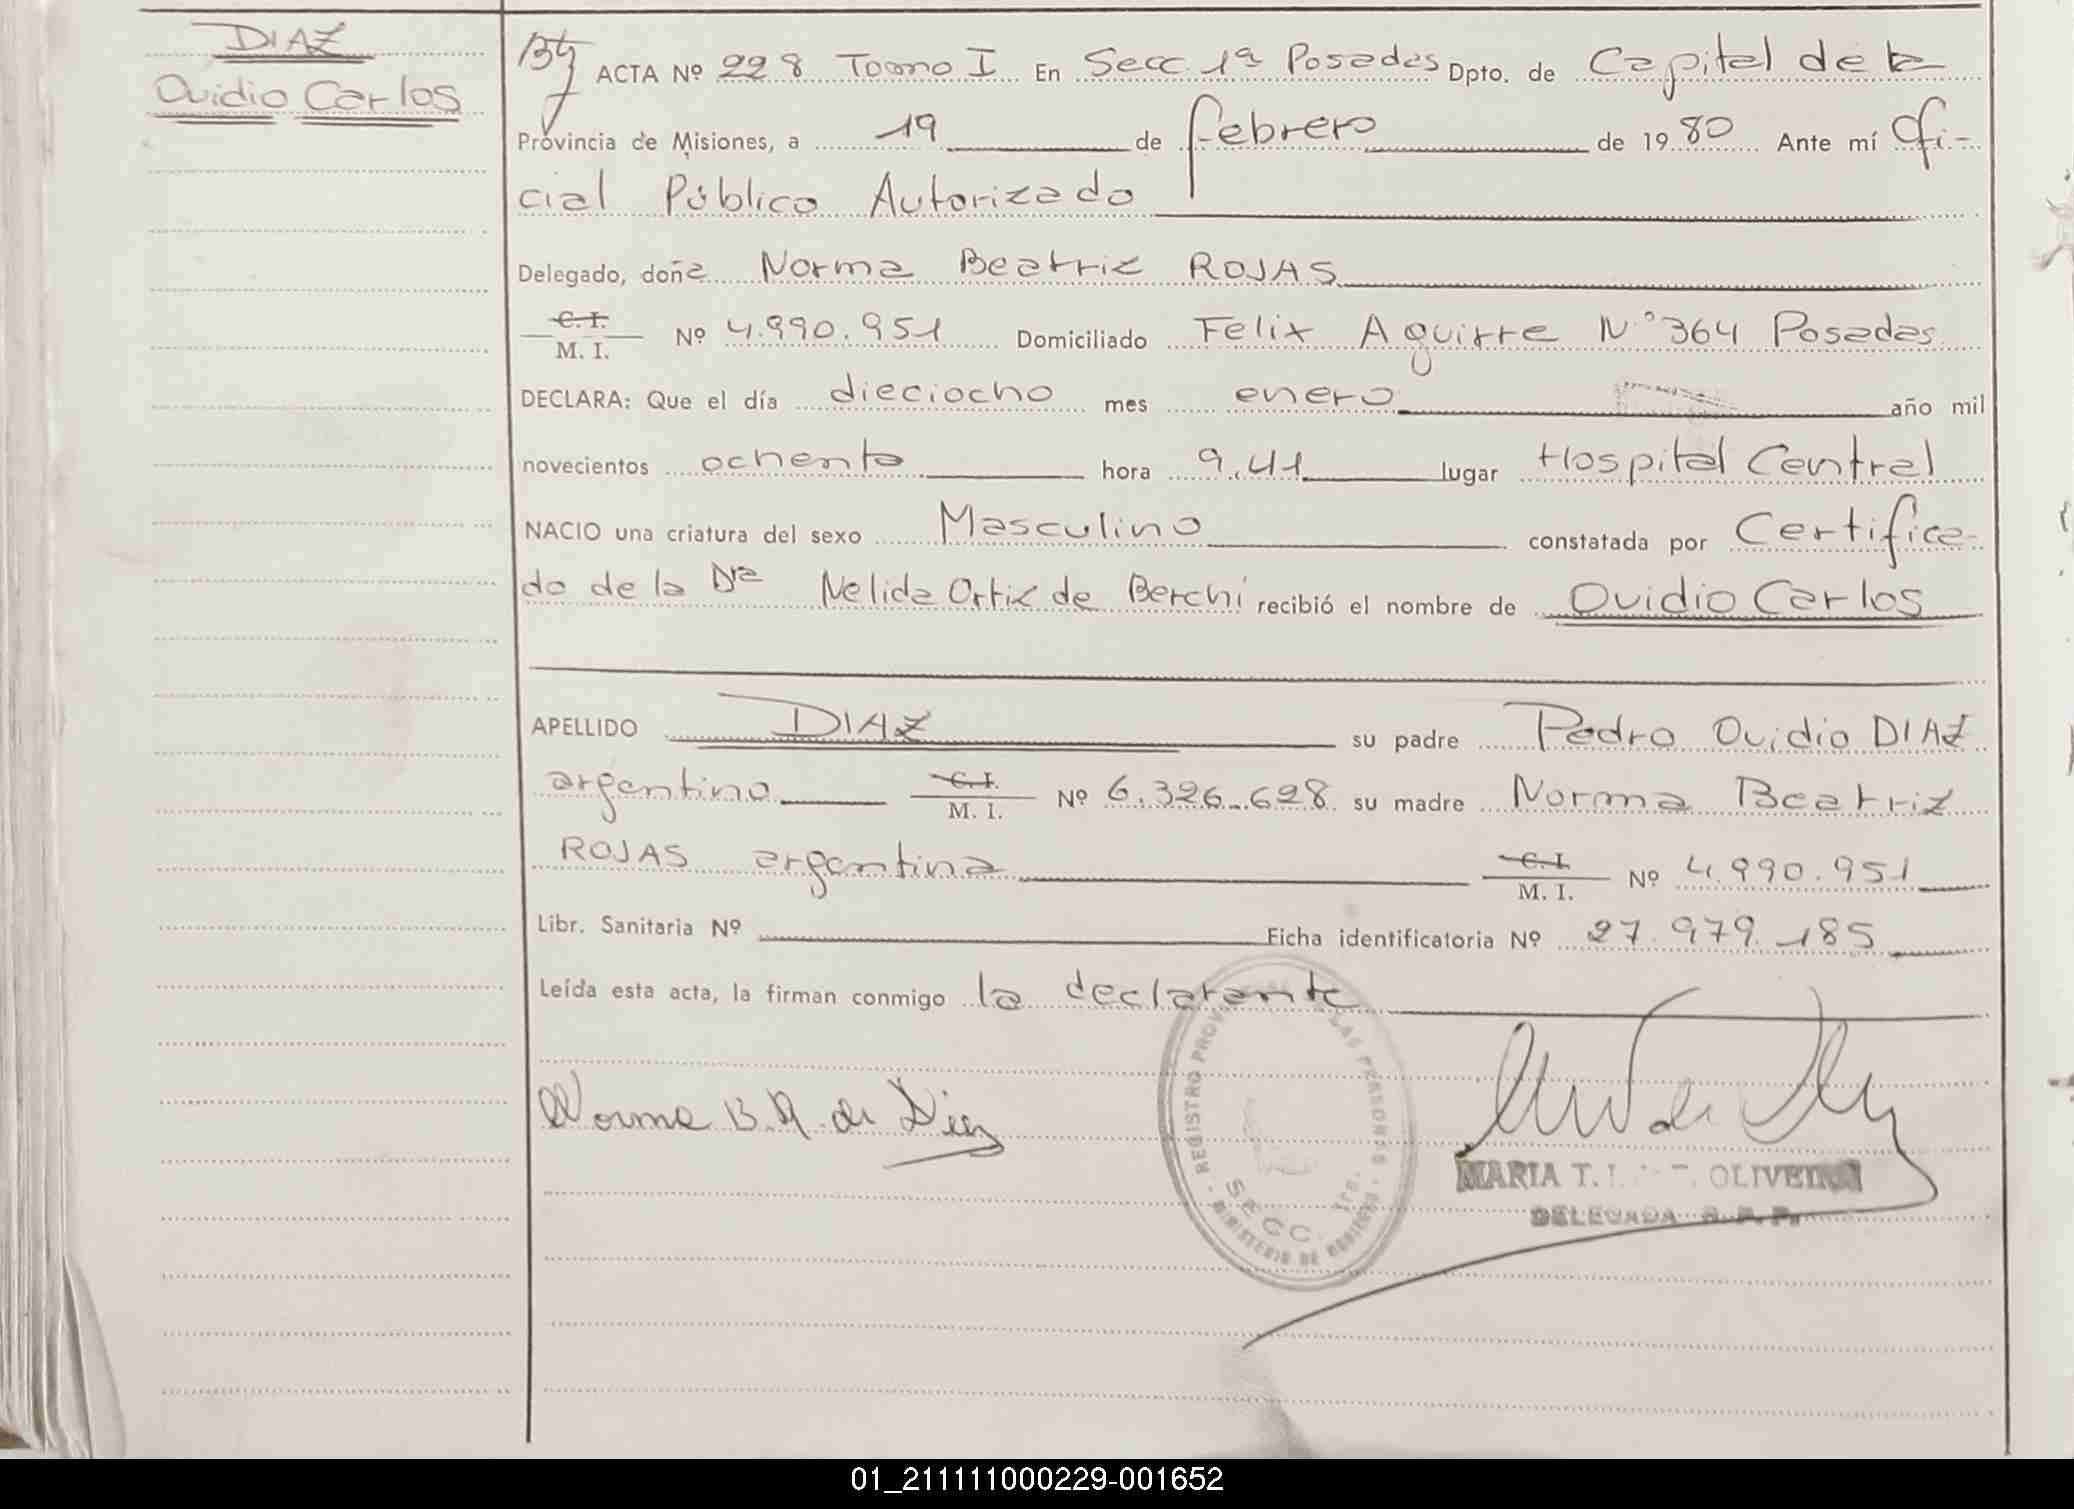 DIAZ
Ovidio Carlos
ACTA Nº 228 Tomo I En Secc 1ª Posadas Dpto. de Capital de la
Provincia de Misiones, a 19 de febrero de 1980 Ante mí Ofi-
cial Público Autorizado
Delegado, doña Norma Beatriz ROJAS
C. I.
M. I. Nº 4.990.951 Domiciliado Felix Aguirre Nº 364 Posadas
DECLARA: Que el día dieciocho mes enero año mil
novecientos ochenta hora 9,41 lugar Hospital Central
NACIO una criatura del sexo Masculino constatada por Certifica-
do de la Dra Nelida Ortiz de Berchi recibió el nombre de Ovidio Carlos
APELLIDO DIAZ su padre Pedro Ovidio DIAZ
argentino C. I. M. I. Nº 6.326.628 su madre Norma Beatriz
ROJAS argentina C. I. M. I. Nº 4.990.951
Libr. Sanitaria Nº Ficha identificatoria Nº 27.979.185
Leída esta acta, la firman conmigo la declarante
Norma B. R. de Diaz
REGISTRO PROV LAS PERSONAS
SECC. 1ra.
MINISTERIO DE GOBIERNO
MARIA T. OLIVEIRA
DELEGADA R. P. P.
01_211111000229-001652